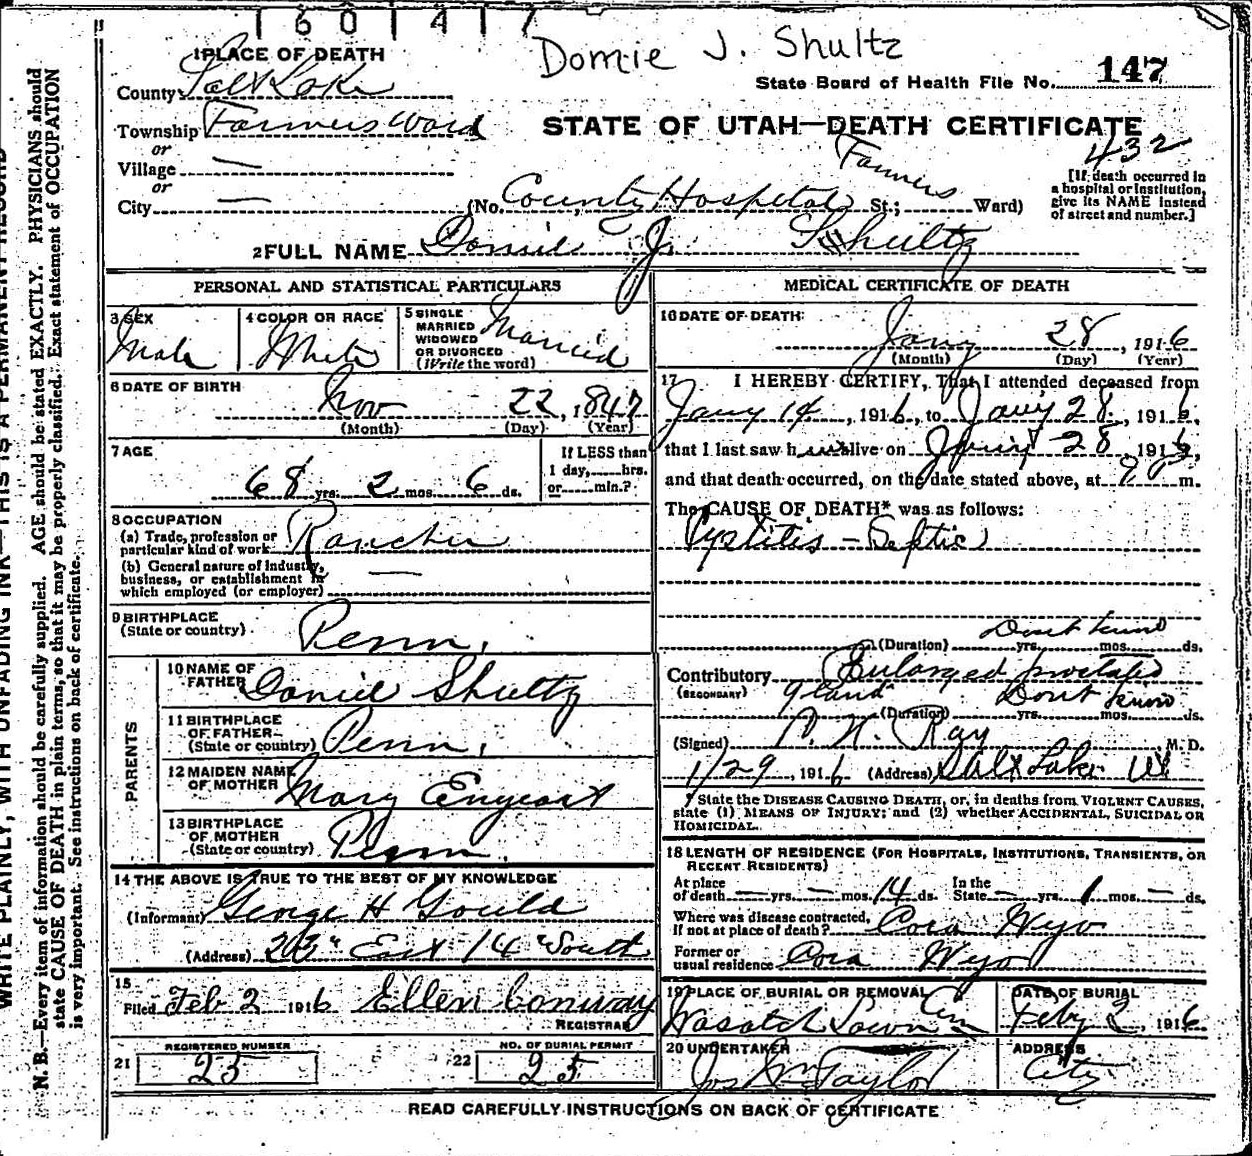 1 6 0 1 4 1 7
Domie J. Shultz
1 PLACE OF DEATH
State Board of Health File No. 147
County Salt Lake
Township Farmers Ward
or
STATE OF UTAH—DEATH CERTIFICATE
432
Village —
or
City —
(No. County Hospital St.; Farmers Ward)
[If death occurred in
a hospital or institution,
give its NAME instead
of street and number.]
2 FULL NAME Daniel J. Shultz
PERSONAL AND STATISTICAL PARTICULARS
3 SEX
Male
4 COLOR OR RACE
White
5 SINGLE
MARRIED
WIDOWED
OR DIVORCED
(Write the word)
Married
6 DATE OF BIRTH
Nov 22, 1847
(Month) (Day) (Year)
7 AGE
68 yrs. 2 mos. 6 ds.
If LESS than
1 day, hrs.
or min.?
8 OCCUPATION
(a) Trade, profession or
particular kind of work Rancher
(b) General nature of industry,
business, or establishment in
which employed (or employer) —
9 BIRTHPLACE
(State or country) Penn.
PARENTS
10 NAME OF
FATHER Daniel Shultz
11 BIRTHPLACE
OF FATHER
(State or country) Penn.
12 MAIDEN NAME
OF MOTHER Mary Enyeart
13 BIRTHPLACE
OF MOTHER
(State or country) Penn.
14 THE ABOVE IS TRUE TO THE BEST OF MY KNOWLEDGE
(Informant) George H Gould
(Address) East 14 South
15
Filed Feb 2 1916 Ellen Conway
REGISTRAR
REGISTERED NUMBER
21 25
NO. OF BURIAL PERMIT
22 25
MEDICAL CERTIFICATE OF DEATH
16 DATE OF DEATH
Jany 28, 1916
(Month) (Day) (Year)
17 I HEREBY CERTIFY, That I attended deceased from
Jany 14, 1916, to Jany 28, 1916,
that I last saw him alive on Jany 28, 1916,
and that death occurred, on the date stated above, at m.
The CAUSE OF DEATH* was as follows:
Cystitis - Septic
Dont know
(Duration) yrs. mos. ds.
Contributory Enlarged prostate
(SECONDARY) gland Dont know
(Duration) yrs. mos. ds.
(Signed) Ray, M. D.
1/29, 1916 (Address) Salt Lake Ut
* State the DISEASE CAUSING DEATH, or, in deaths from VIOLENT CAUSES,
state (1) MEANS OF INJURY; and (2) whether ACCIDENTAL, SUICIDAL OR
HOMICIDAL.
18 LENGTH OF RESIDENCE (FOR HOSPITALS, INSTITUTIONS, TRANSIENTS, OR
RECENT RESIDENTS)
At place
of death — yrs. — mos. 14 ds. In the
State — yrs. 1 mos. — ds.
Where was disease contracted,
If not at place of death? Cora Wyo
Former or
usual residence Cora Wyo
19 PLACE OF BURIAL OR REMOVAL
Wasatch Lawn Cem
DATE OF BURIAL
Feby 2, 1916
20 UNDERTAKER
Jos Wm Taylor
ADDRESS
City
READ CAREFULLY INSTRUCTIONS ON BACK OF CERTIFICATE
WRITE PLAINLY, WITH UNFADING INK—THIS IS A PERMANENT RECORD
N. B.—Every item of information should be carefully supplied. AGE should be stated EXACTLY. PHYSICIANS should
state CAUSE OF DEATH in plain terms, so that it may be properly classified. Exact statement of OCCUPATION
is very important. See instructions on back of certificate.